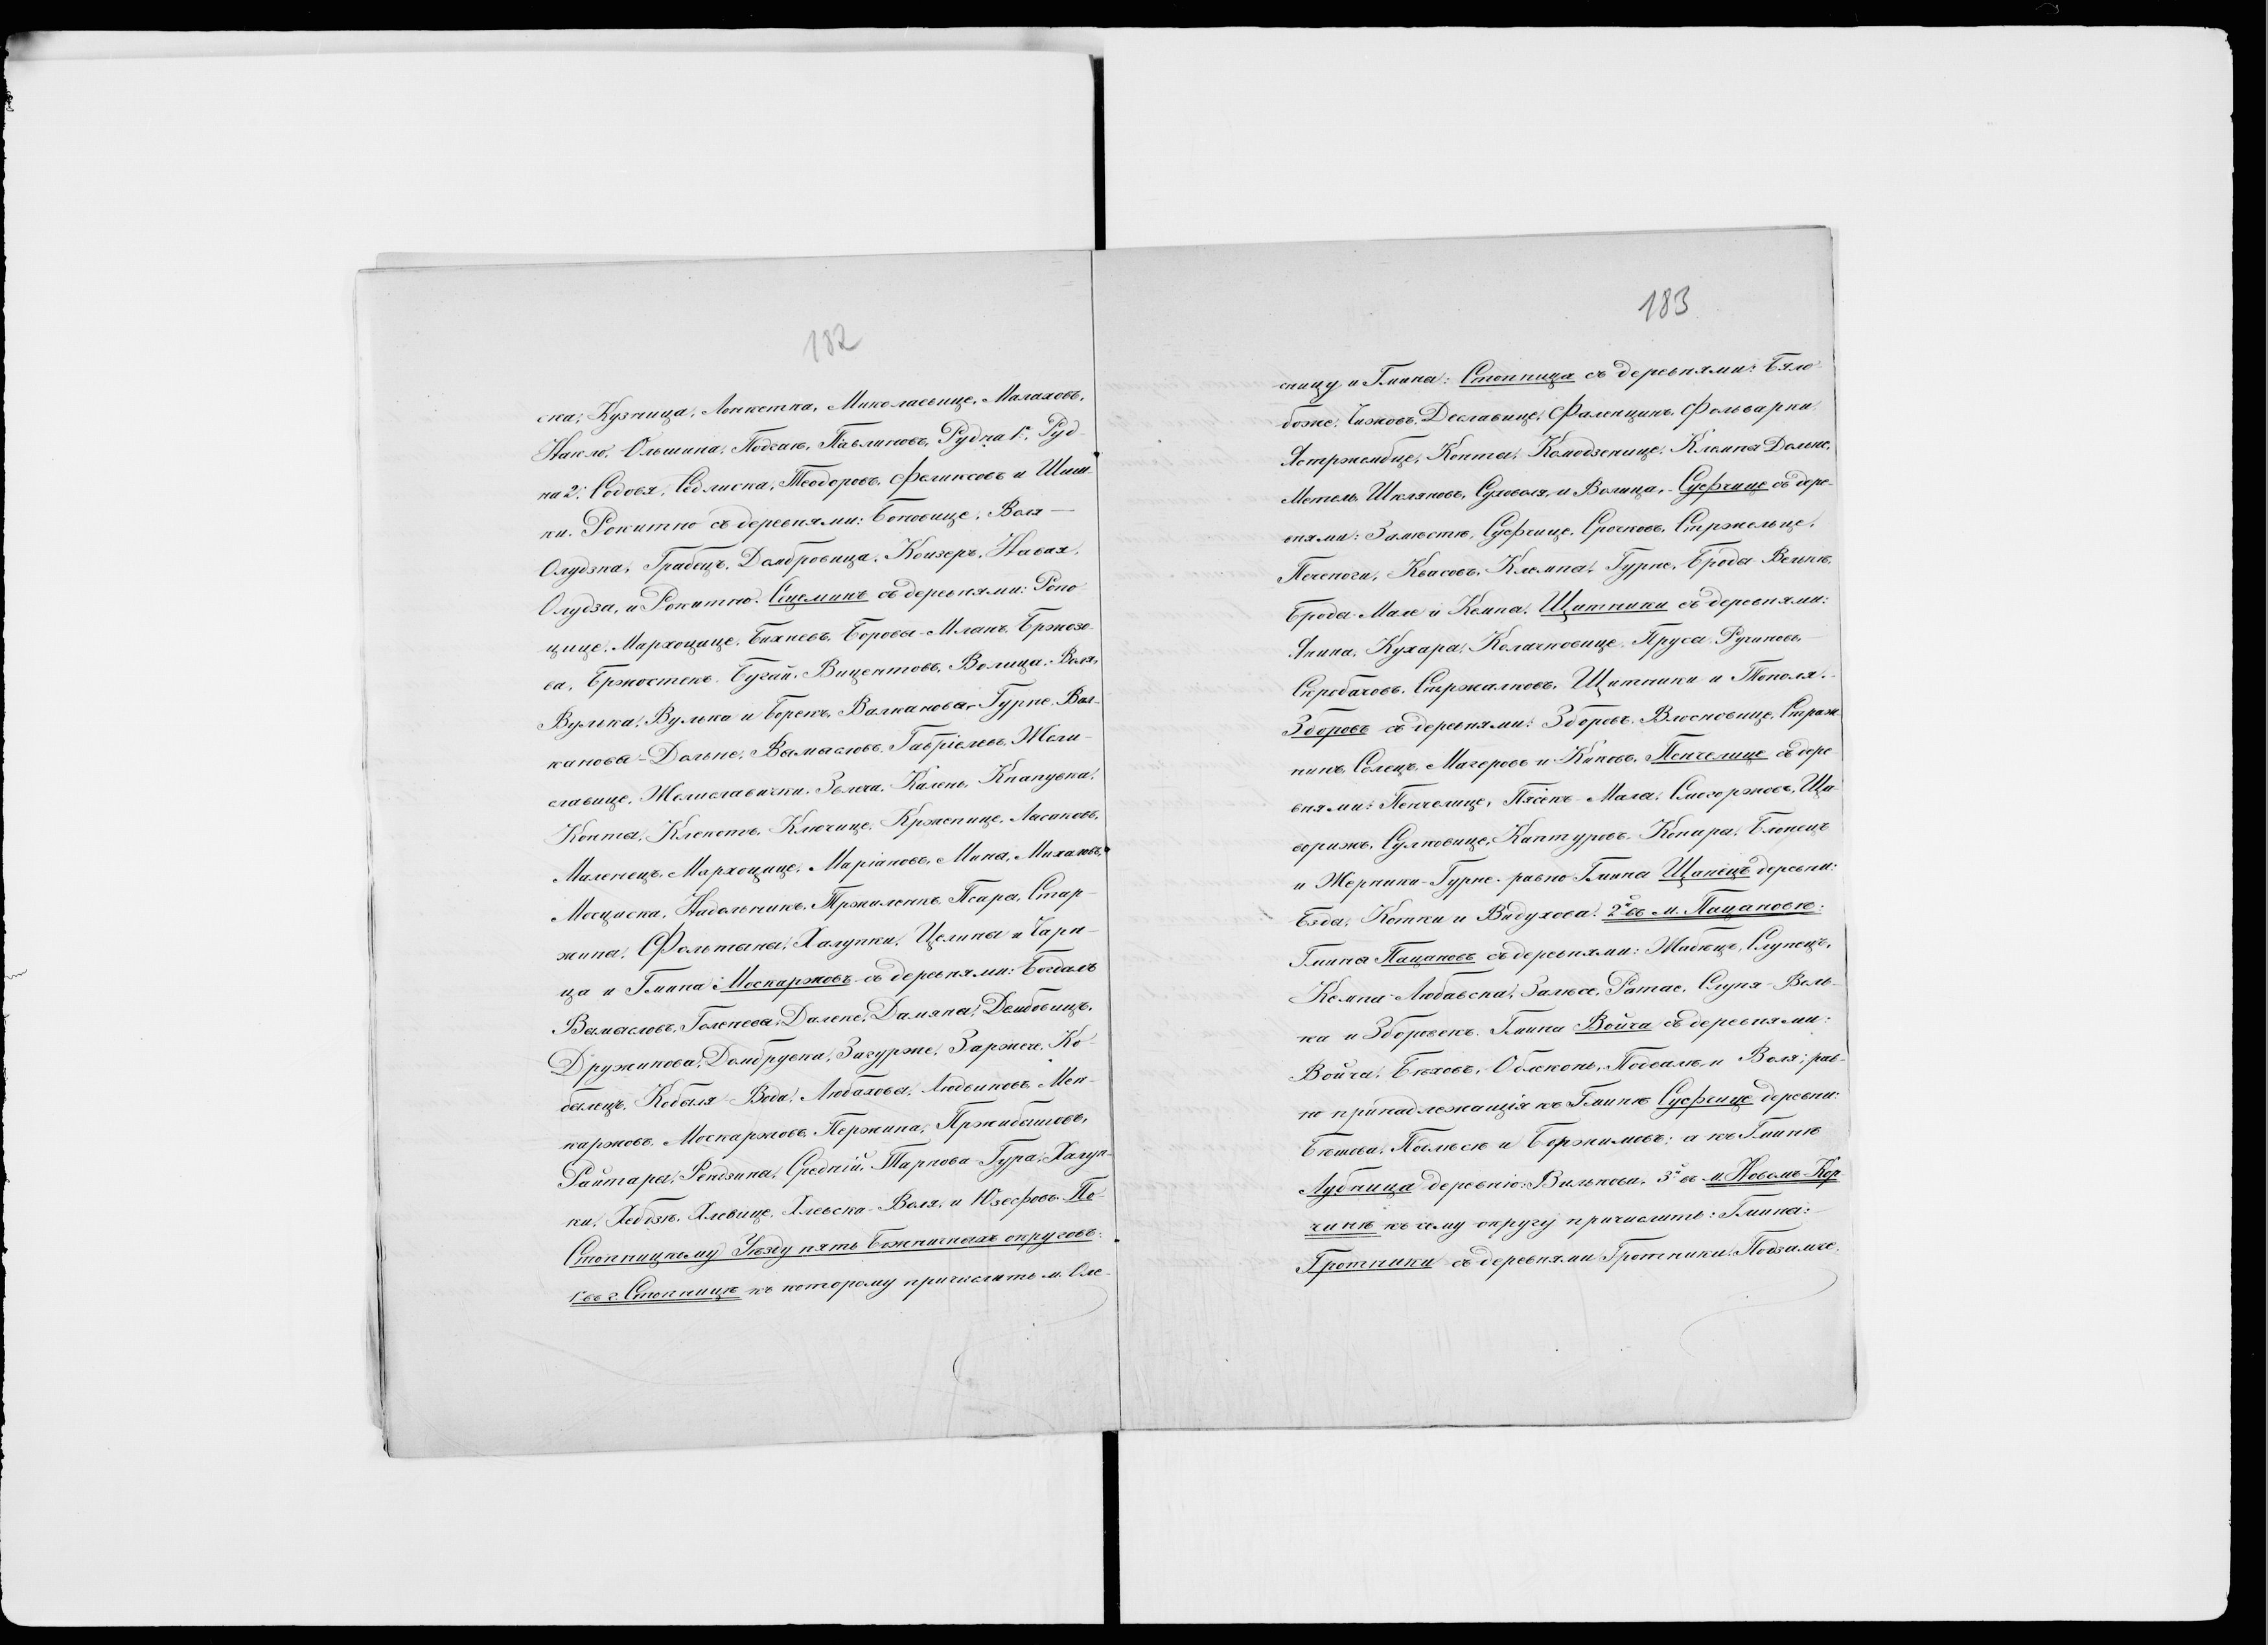 182
ска, Кузница, Лонкетка, Миколаевице, Малаховъ,
Накло, Ольшина, Подгаю, Павликовъ, Рудка 1я, Руд-
ка 2я, Содовя, Седлиска, Теодоровъ, Феликсовъ и Шиш-
ки. Рокитно съ деревнями: Боновице, Воля-
Олудзка, Грабецъ, Домбровица, Конзеръ, Новая
Олудза, и Рокитно. Сецеминъ съ деревнями: Ропо-
цице, Мархоцице, Бихневъ, Борова-Млака, Бржозо-
ва, Бржостекъ, Бугай, Вицентовъ, Волица, Воля,
Вулька, Вулька и Борекъ, Валканова-Гурне, Вал-
канова-Дольне, Вымысловъ, Габріелевъ, Жели-
славице, Желиславички, Зыгчи, Калень, Кнапувка,
Конты, Клекотъ, Ключице, Кржепице, Ласиковъ,
Маленецъ, Мархоцице, Маріановъ, Мина, Михаловъ,
Мосциска, Надольникъ, Тржиленкъ, Псары, Стар-
жина, Фольтыны, Халупки, Целины и Чарн-
ца и Гмина Москаржовъ съ деревнями: Богдалъ
Вымысловъ, Голенева, Далеке, Дамяны, Дембовицъ,
Дружикова, Домбрувка, Загурже, Заржече, Ко-
былецъ, Кобыля-Вода, Любахова, Людвиковъ, Мен-
каржовъ, Москаржовъ, Пержина, Пржибышовъ,
Райтары, Рендзины, Средній, Тарнова-Гура, Халуп-
ки, Хебдзе, Хлевице, Хлевска-Воля, и Юзефовъ. По
Стопницкому Уѣзду пять Божничныхъ округовъ:
1й въ г. Стопницѣ къ которому причислить м. Оле-
183
сницу и Гмины: Стопница съ деревнями: Бяло-
боже, Чижовъ, Деславице, Фаленцинъ, Фольварки,
Ястржембице, Конты, Комодзенице, Клемпя Дольне,
Метель, Шкляновъ, Суховоля, и Волица, Суфчице съ дере-
внями: Замѣстѣ, Суфчице, Срочковъ, Стржельце,
Печеноги, Квасовъ, Клемпа Гурне, Брода-Велькѣ,
Брода-Мале и Кемпа. Щитники съ деревнями:
Янина, Кухары, Колачковице, Пруса, Ручиновъ
Скробачовъ, Стржалковъ, Щитники и Тополя.
Зборовъ съ деревнями: Зборовъ, Влосновице, Страж-
никъ, Солецъ, Магеровъ и Киковъ, Пенчелице съ дере-
внями: Пенчелице, Пясекъ-Мала, Смогоржовъ, Ща-
ворижъ, Сулковице, Каптуровъ, Конары, Блонецъ
и Жерники-Гурне. равно Гмина Щанецъ деревни:
Бзда, Котки и Видухова. 2й въ м. Пацановѣ:
Гмина Пацановъ съ деревнями: Жабецъ, Слупецъ,
Кемпа-Любавска, Залѣсе, Ратае, Слупя, Воль-
ка и Зборовекъ. Гмина Войча съ деревнями:
Войча, Бѣховъ, Облеконь, Подвале, и Воля; рав-
но принадлежащія къ Гминѣ Суфчице деревни:
Бѣшова, Полѣсе и Боржимовъ; а къ Гминѣ
Лубница деревню: Вилькова, 3й въ м. Новомъ-Кор-
чинѣ къ сему округу причислить: Гмины:
Гротники съ деревнями Гротники Подзамче,